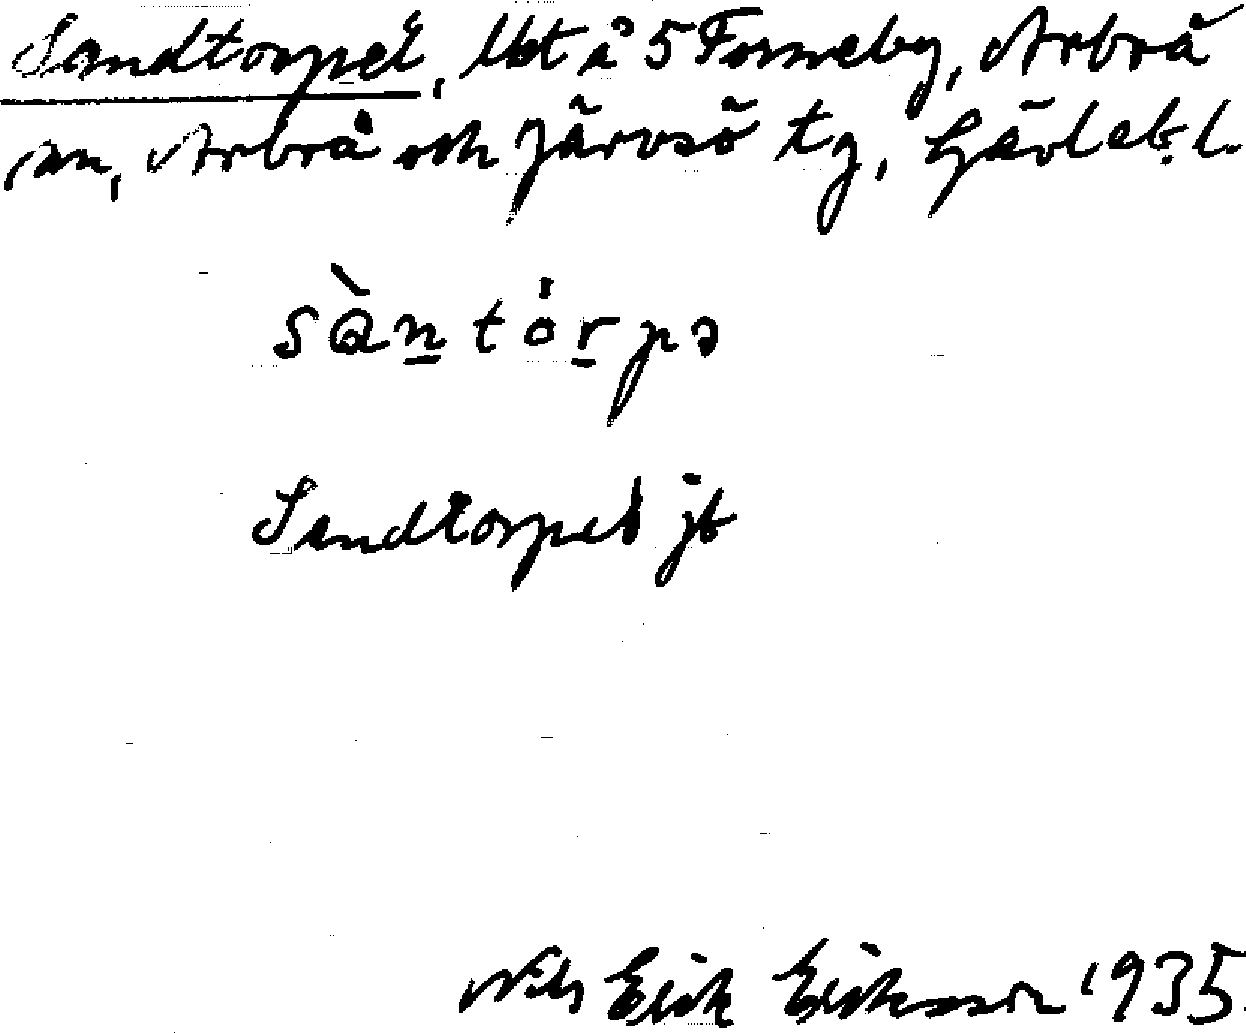 Sandtorpet, lht å 5 Forneby, Arbrå
sn, Arbrå och Järvsö tg, Gävleb. l.
sàntórpə
Sandtorpet jb
Nils Erik Eriksson 1935.